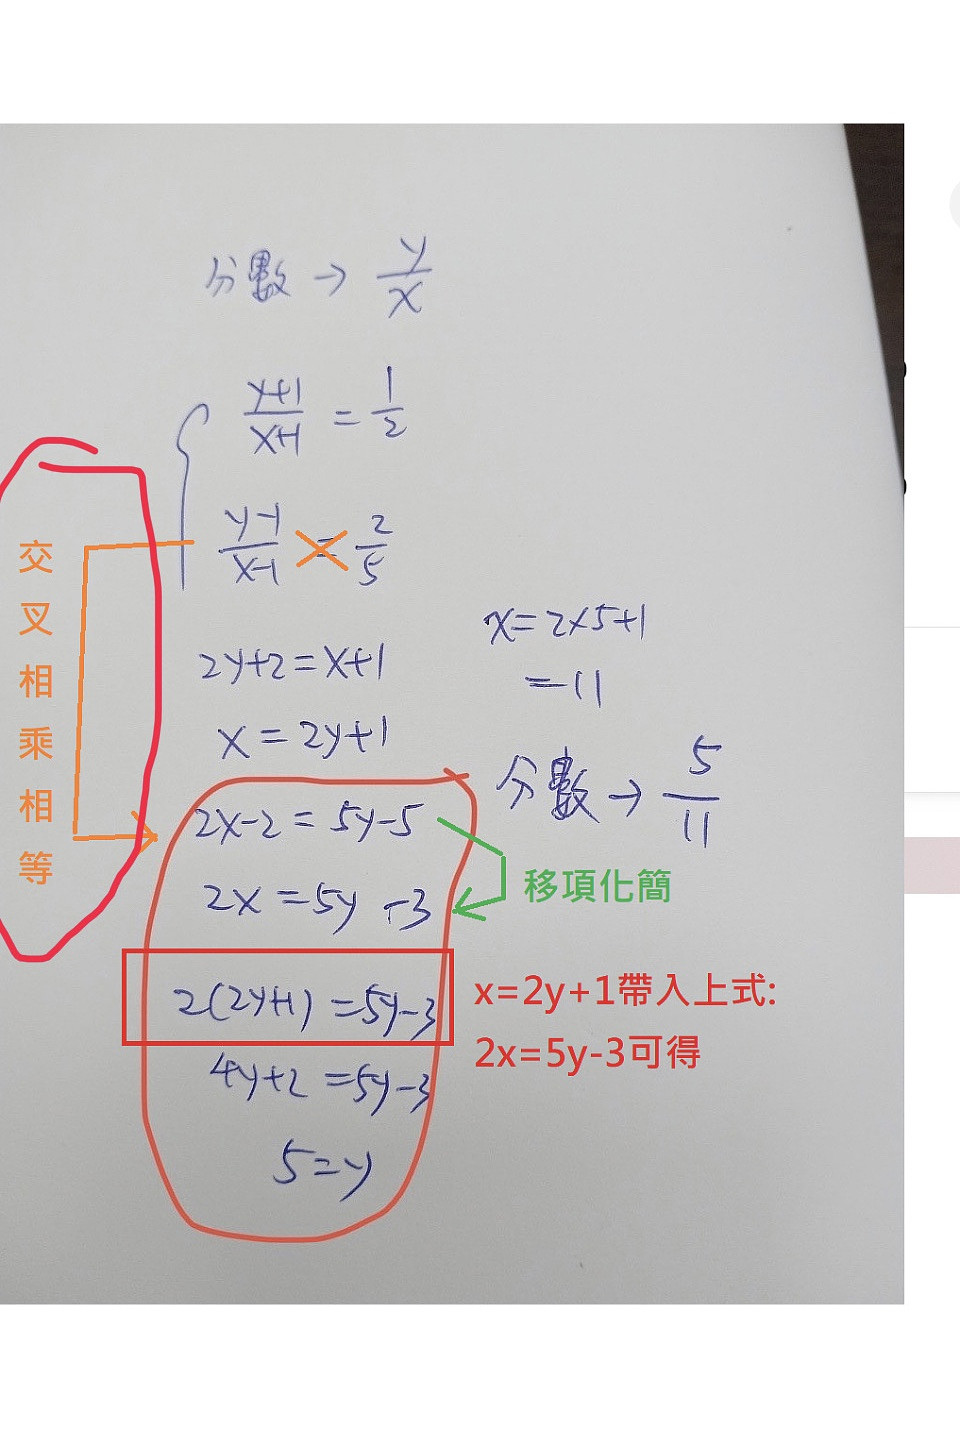 分數→y/x
y+1/x+1=1/2
y-1/x-1=2/5
交叉相乘相等
2y+2=x+1
x=2y+1
2x-2=5y-5
2x=5y-3
移項化簡
2(2y+1)=5y-3
x=2y+1帶入上式:
2x=5y-3可得
4y+2=5y-3
5=y
x=2x5+1
=11
分數→5/11